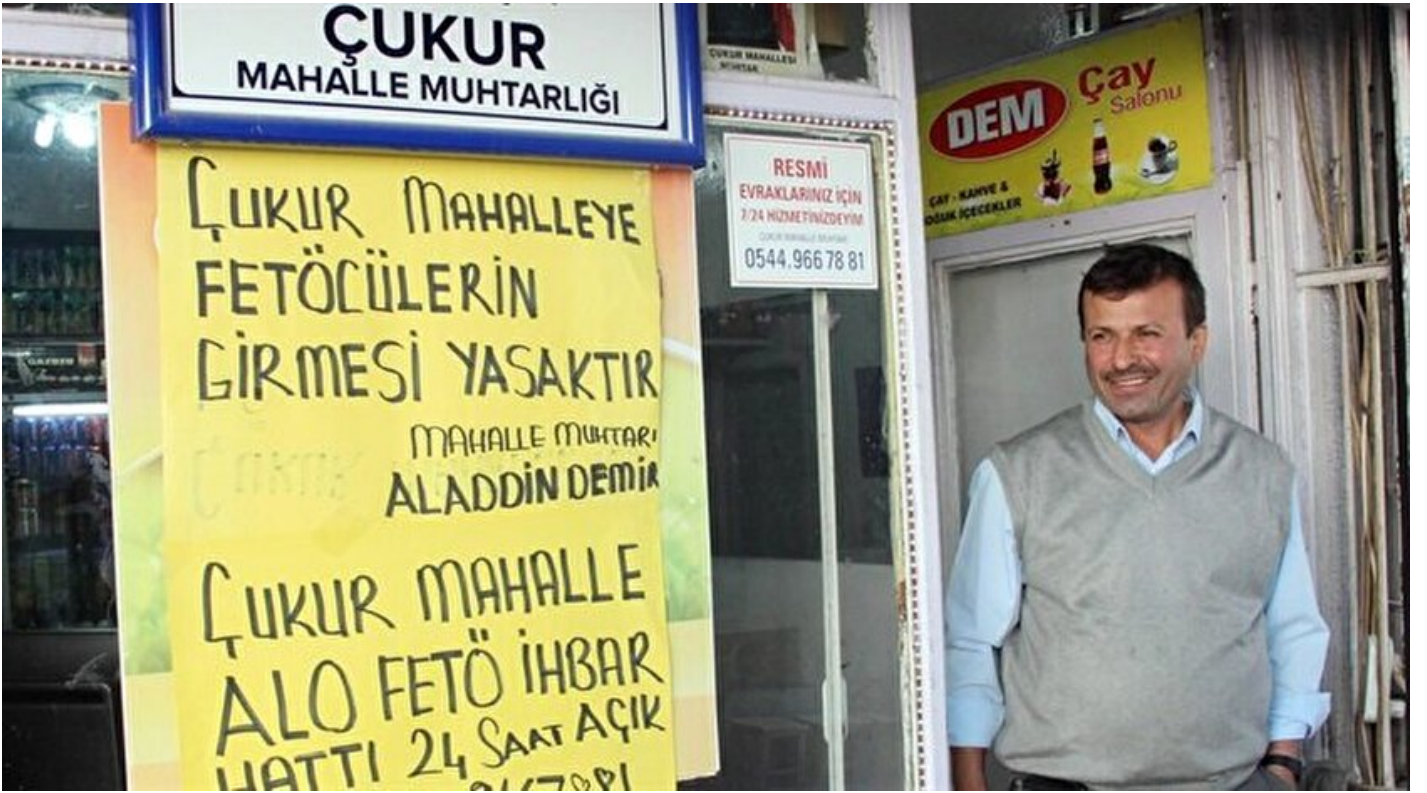 ÇUKUR
MAHALLE MUHTARLIĞI
ÇUKUR MAHALLEYE
FETÖCÜLERİN
GİRMESİ YASAKTIR
MAHALLE MUHTARI
ALADDİN DEMİR
ÇUKUR MAHALLE
ALO FETÖ İHBAR
HATTI 24 SAAT AÇIK
ÇUKUR MAHALLESİ
MUHTAR
RESMİ
EVRAKLARINIZ İÇİN
7/24 HİZMETİNİZDEYİM
ÇUKUR MAHALLE MUHTARI
0544.966 78 81
DEM Çay
Salonu
ÇAY - KAHVE &
SOĞUK İÇECEKLER